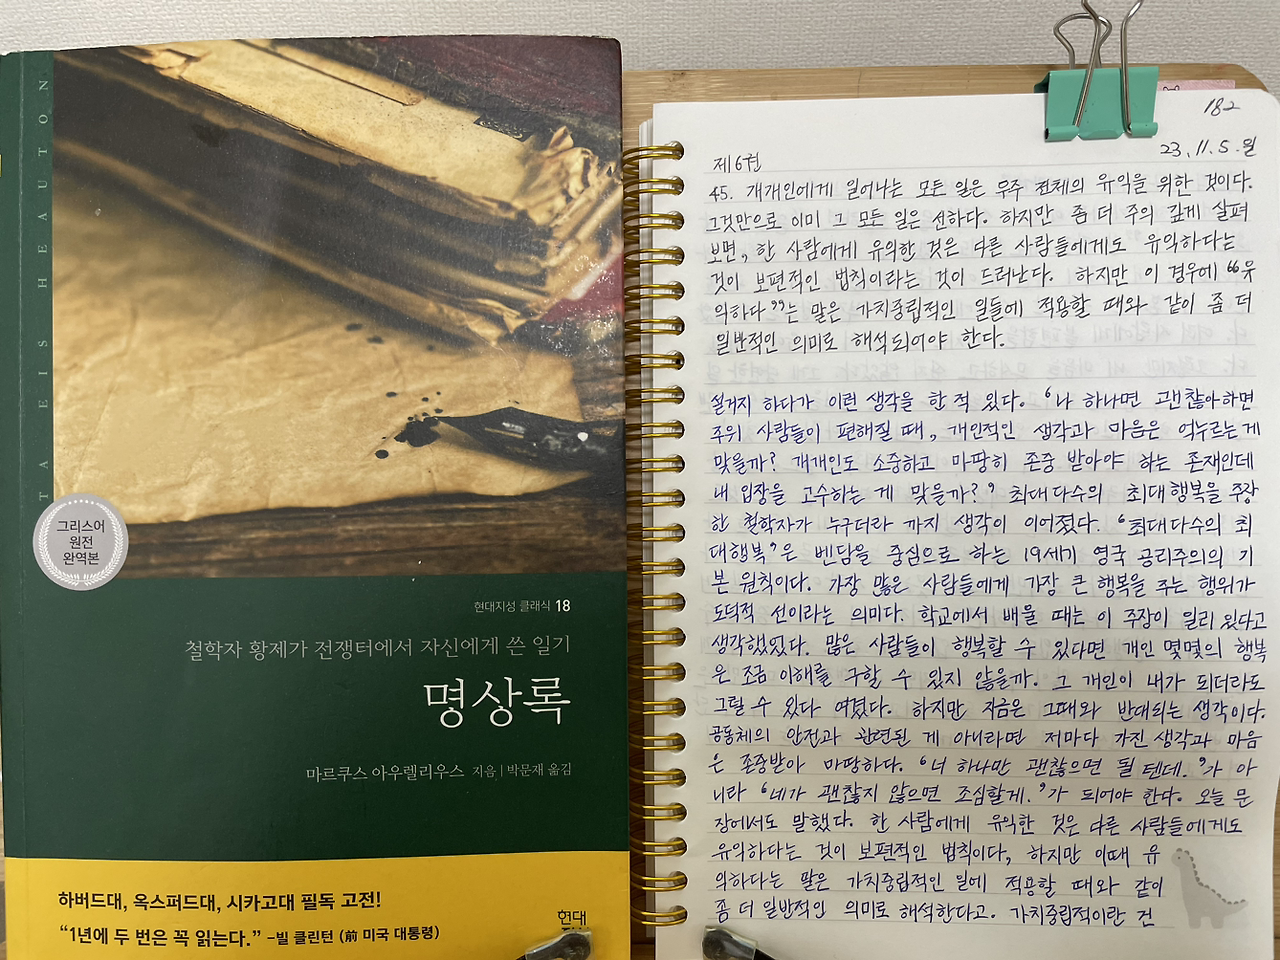 TA EIS HEAUTON
그리스어
원전
완역본
현대지성 클래식 18
철학자 황제가 전쟁터에서 자신에게 쓴 일기
명상록
마르쿠스 아우렐리우스 지음 | 박문재 옮김
하버드대, 옥스퍼드대, 시카고대 필독 고전!
“1년에 두 번은 꼭 읽는다.” –빌 클린턴 (前 미국 대통령)
현대
182
23. 11. 5. 월
제6권
45. 개개인에게 일어나는 모든 일은 우주 전체의 유익을 위한 것이다.
그것만으로 이미 그 모든 일은 선하다. 하지만 좀 더 주의 깊게 살펴
보면, 한 사람에게 유익한 것은 다른 사람들에게도 유익하다는
것이 보편적인 법칙이라는 것이 드러난다. 하지만 이 경우에 “유
익하다”는 말은 가치중립적인 일들에 적용할 때와 같이 좀 더
일반적인 의미로 해석되어야 한다.
설거지 하다가 이런 생각을 한 적 있다. ‘나 하나면 괜찮아하면
주위 사람들이 편해질 때, 개인적인 생각과 마음은 억누르는게
맞을까? 개개인도 소중하고 마땅히 존중 받아야 하는 존재인데
내 입장을 고수하는 게 맞을까?’ 최대다수의 최대행복을 주장
한 철학자가 누구더라 까지 생각이 이어졌다. ‘최대다수의 최
대행복’은 벤담을 중심으로 하는 19세기 영국 공리주의의 기
본 원칙이다. 가장 많은 사람들에게 가장 큰 행복을 주는 행위가
도덕적 선이라는 의미다. 학교에서 배울 때는 이 주장이 일리 있다고
생각했었다. 많은 사람들이 행복할 수 있다면 개인 몇몇의 행복
은 조금 이해를 구할 수 있지 않을까. 그 개인이 내가 되더라도
그럴 수 있다 여겼다. 하지만 지금은 그때와 반대되는 생각이다.
공동체의 안전과 관련된 게 아니라면 저마다 가진 생각과 마음
은 존중받아 마땅하다. ‘너 하나만 괜찮으면 될텐데.’가 아
니라 ‘네가 괜찮지 않으면 조심할게.’가 되어야 한다. 오늘 문
장에서도 말했다. 한 사람에게 유익한 것은 다른 사람들에게도
유익하다는 것이 보편적인 법칙이다, 하지만 이때 유
익하다는 말은 가치중립적인 일에 적용할 때와 같이
좀 더 일반적인 의미로 해석한다고. 가치중립적이란 건